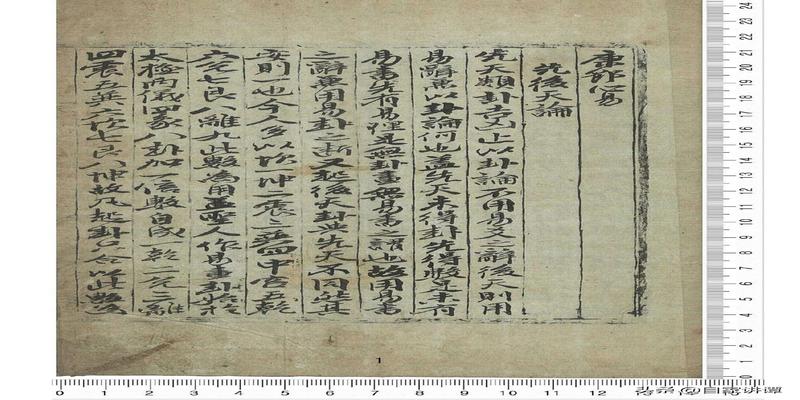 康節心易
先後天論
先天類卦吉凶止以卦論不用易爻之辭後天則用
易辭兼以卦論何也蓋先天未得卦先得數是未有
易書先有易理是無卦畫無易書之謂也故用易書
之辭兼用易卦之斷又起後天卦與先天不同此其
实則一也今人多以坎一坤二震三巽四中宮五乾
六兌七艮八離九此數為用盖聖人作易畫卦始於
太極兩儀四象八卦加一倍數自成一乾二兌三離
四震五巽六坎七艮八坤故凡起卦只合以此數為
1
0 1 2 3 4 5 6 7 8 9 10 11 12
头条 @